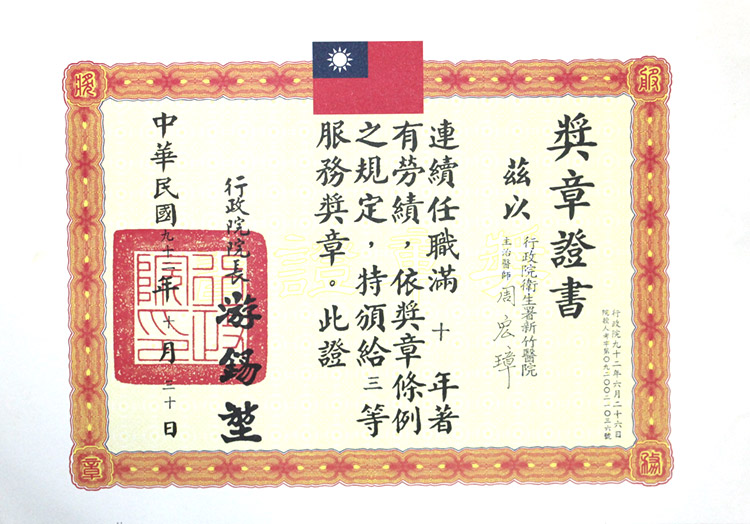 獎章證書
行政院九十二年六月二十六日
院授人考字第〇九二〇〇二一〇三六號
茲以
行政院衛生署新竹醫院
主治醫師 周宏璋
連續任職滿十年著
有勞績，依獎章條例
之規定，特頒給三等
服務獎章。此證
行政院院長 游錫堃
中華民國九十二年十月二十日
服
務
獎
章